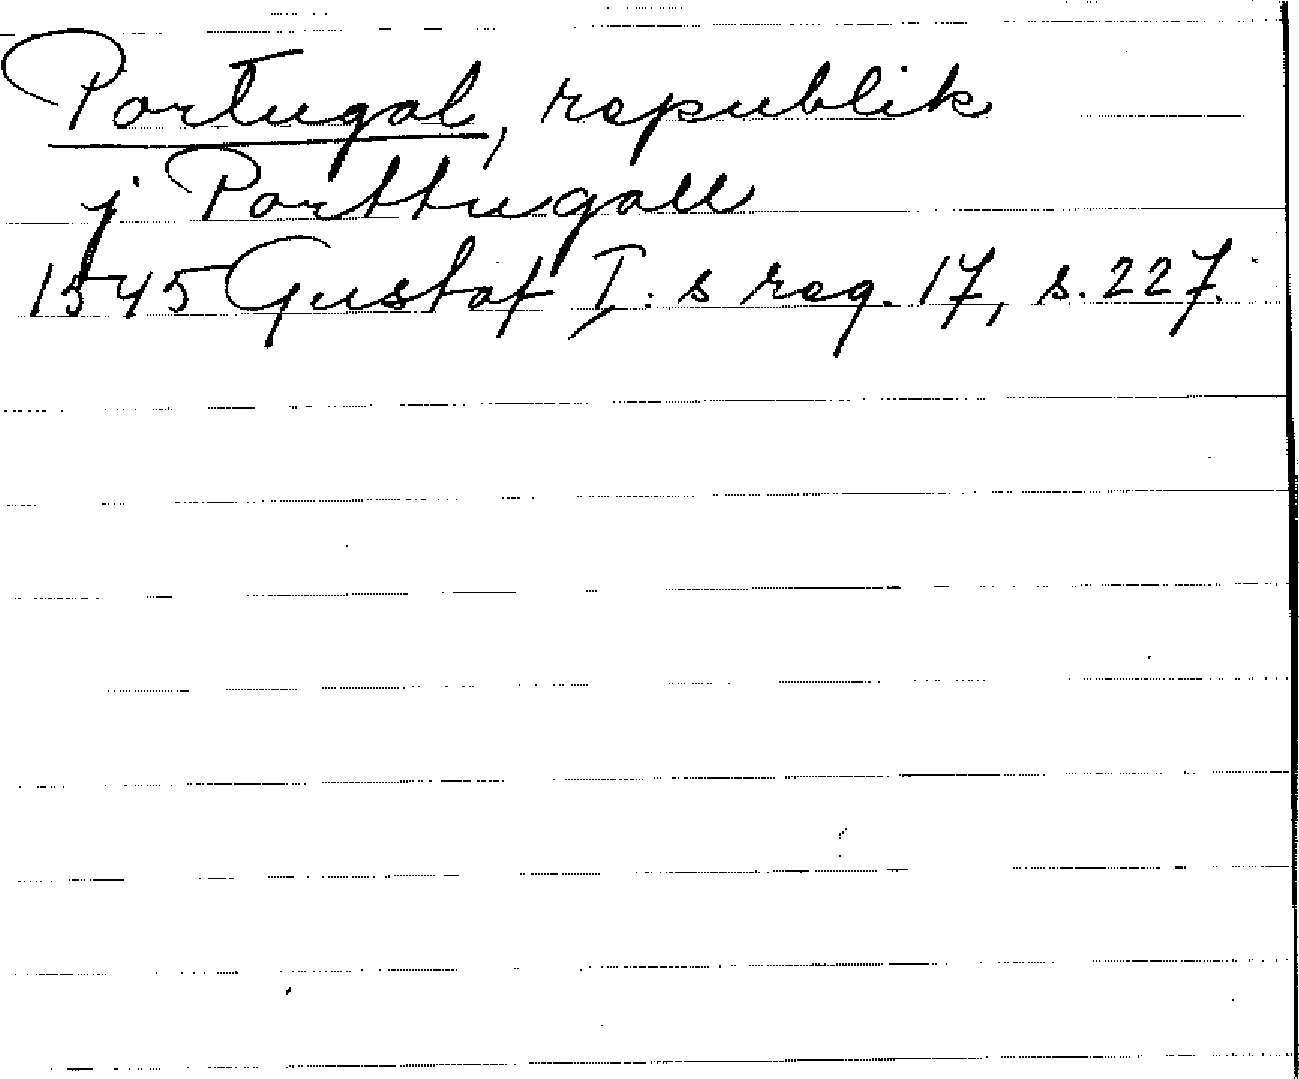 Portugal, republik
j Porttugall
1545 Gustaf I:s reg. 17, s. 227.